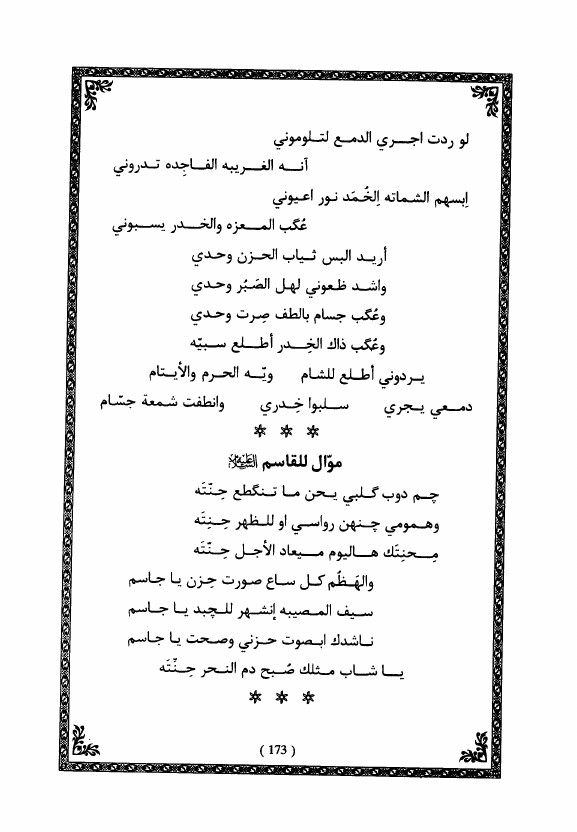 لو ردت اجري الدمع لتلوموني
آنه الغريبه الفاجده تدروني
اِبسهم الشماته اِلخُمَد نور اعيوني
عُگب المعزه والخدر يسبوني
أريد البس ثياب الحزن وحدي
واشد ظعوني لهل الصَبُر وحدي
وعُگب جسام بالطف صِرت وحدي
وعُگب ذاك الخِدر أطلع سبيّه
يردوني أطلع للشام ويّه الحرم والأيتام
دمعي يجري سلبوا خِدري وانطفت شمعة جسّام
* * *
موّال للقاسم عليه السلام
چم دوب گلبي يحن ما تنگطع حِنّتَه
وهمومي چنهن رواسي او للظهر حِنِتَه
مِحنِتَك هاليوم ميعاد الأجل حِنّتَه
والهَظُم كل ساع صورت حِزن يا جاسم
سيف المصيبه اِنشهر للچبد يا جاسم
ناشدك ابصوت حزني وصحت يا جاسم
يا شاب مثلك صُبح دم النحر حِنّتَه
* * *
( 173 )